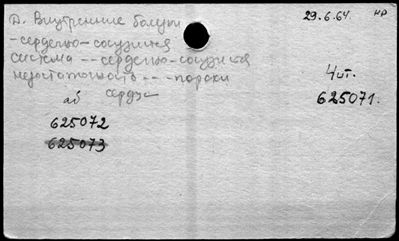 Д. Внутренние болезни
29.6.64. нр
-сердечно-сосудистая
система -- сердечно-сосудистая
недостаточность -- -пороки
сердца
4 шт.
аб
625071.
625072
625073